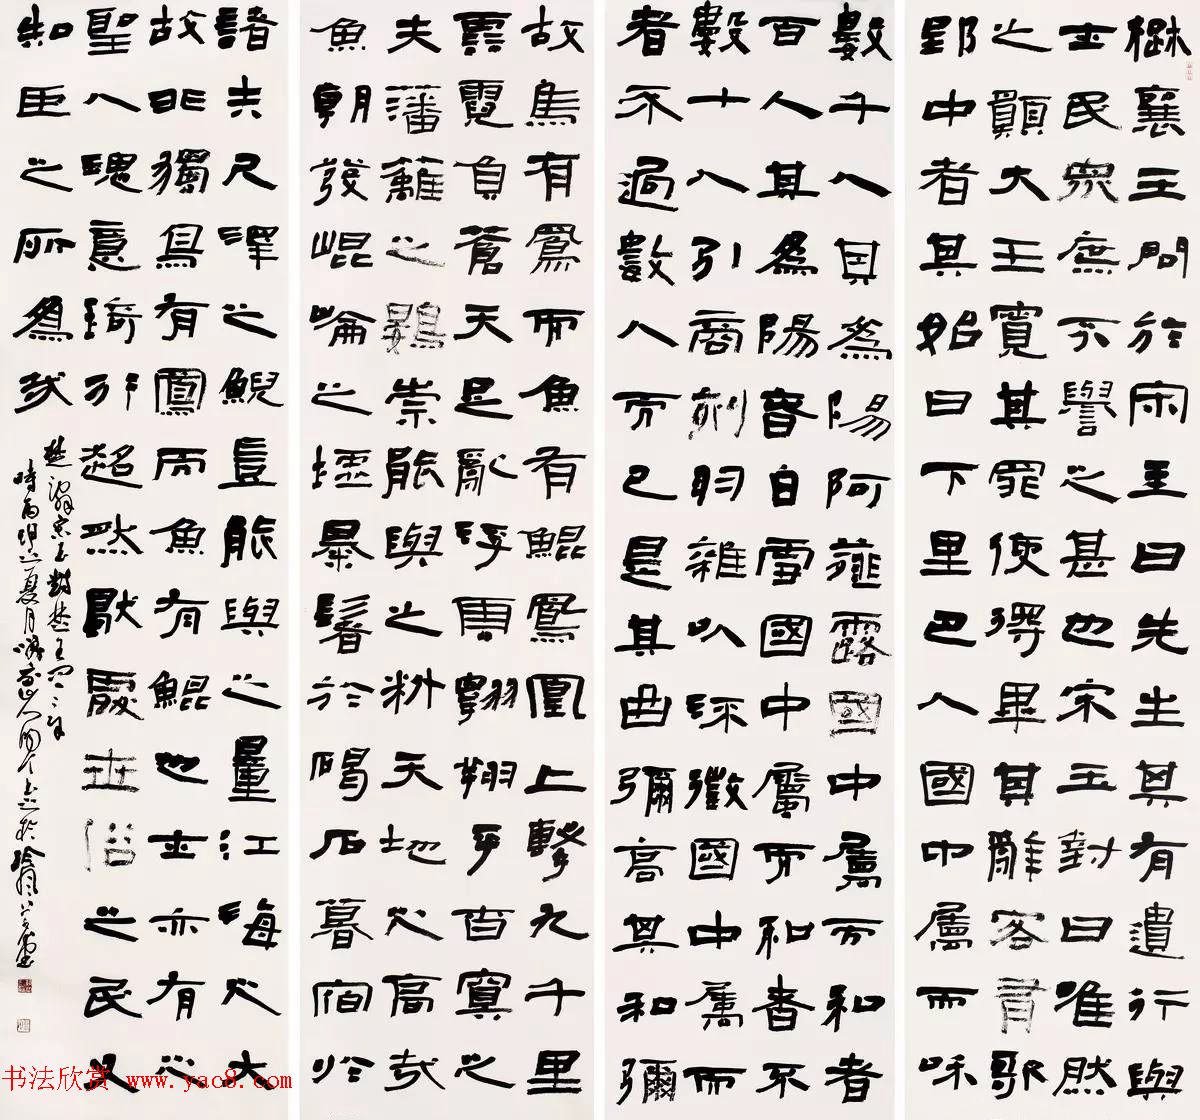 楚襄王問於宋玉曰先生其有遺行與
士民眾庶不譽之甚也宋玉對曰唯然
之願大王寬其罪使得畢其辭客有歌
郢中者其始曰下里巴人國中屬而和
數千人其為陽阿薤露國中屬而和者
百人其為陽春白雪國中屬而和者不
數十人引商刻羽雜以流徵國中屬而
者不過數人而已是其曲彌高其和彌
故鳥有鳳而魚有鯤鳳凰上擊九千里
雲霓負蒼天足亂浮雲翱翔乎杳冥之
夫藩籬之鷃豈能與之料天地之高哉
魚朝發崑崙之墟暴鬐於碣石暮宿於
諸夫尺澤之鯢豈能與之量江海之大
故非獨鳥有鳳而魚有鯤也士亦有之
聖人瑰意琦行超然獨處世俗之民又
知臣之所為哉
楚辭宋玉對楚王問
书法欣赏 www.yac8.com